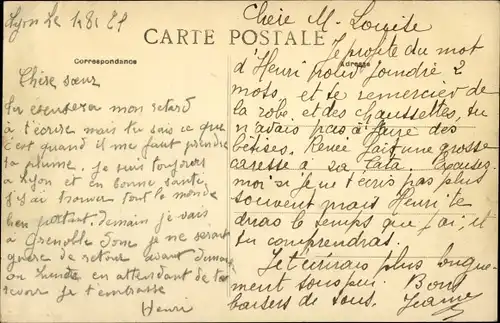 Lyon Le
CARTE POSTALE
Correspondance
Adresse
Chère sœur
Tu excusera mon retard
à t'écrire mais tu sais ce que
c'est quand il me faut prendre
la plume. Je suis toujours
à Lyon et en bonne santé
j'ai trouver tout le monde
bien portant. Demain je vais
à Grenoble donc je ne serai
guère de retour avant
ou Lundi en attendant de te
revoir je t'embrasse
Henri
Chère M. Louise
Je profite du mot
d'Henri pour joindre 2
mots et te remercier de
la robe et des chaussettes, tu
n'avais pas à faire des
bêtises. Renée fait une grosse
caresse à sa tata. Excuses
moi si je ne t'écris pas plus
souvent mais Henri te
diras le temps que j'ai, et
tu comprendras.
Je t'écrirais plus longue-
ment sous peu. Bons
baisers de tous. Jeanne